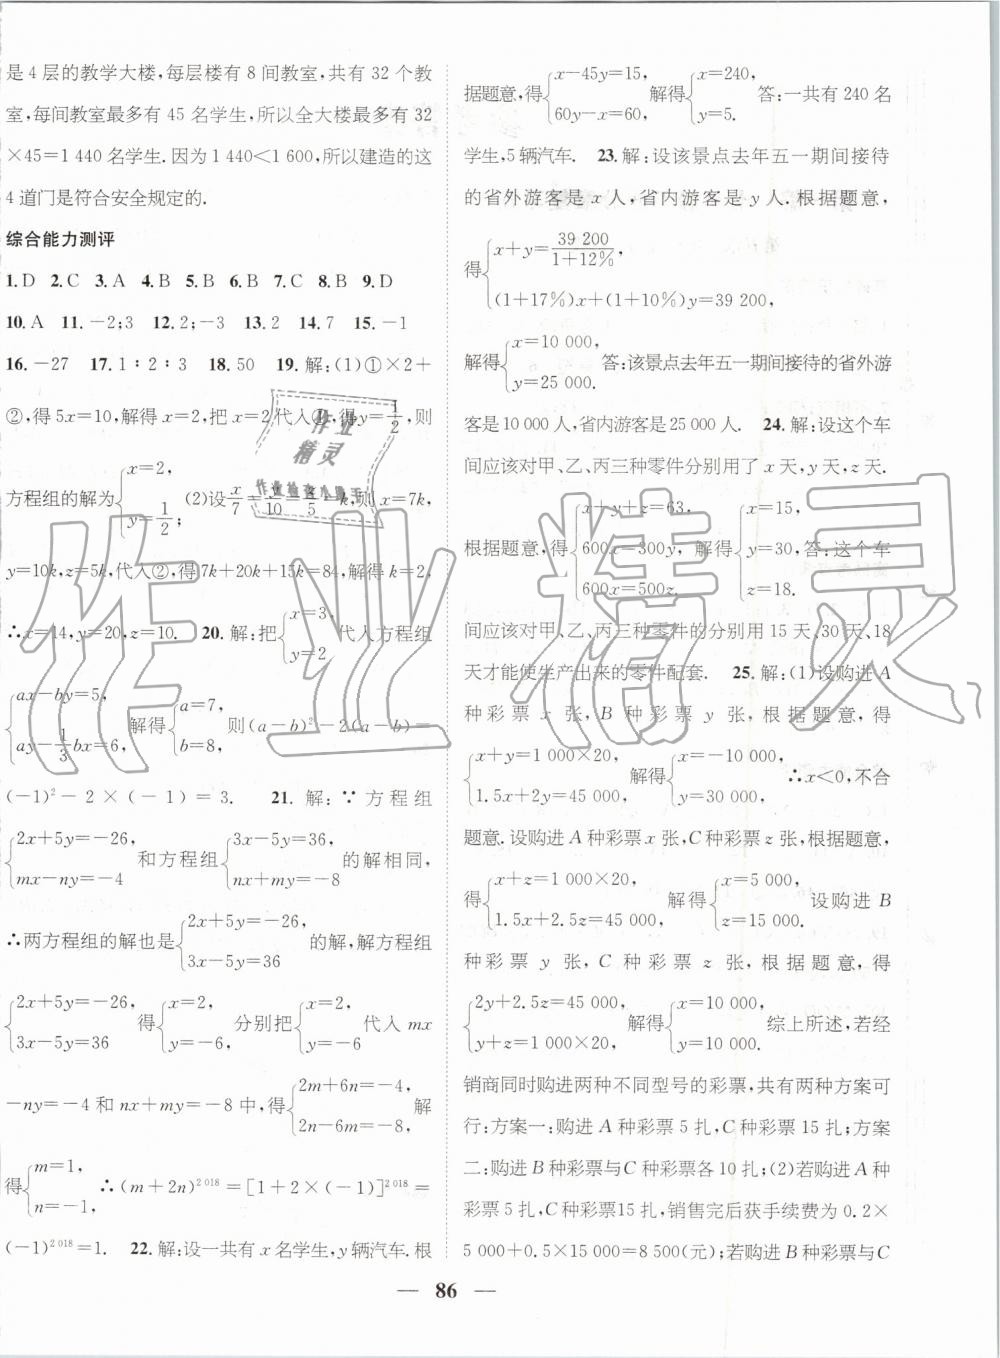 是4层的教学大楼,每层楼有8间教室,共有32个教
室,每间教室最多有45名学生,所以全大楼最多有32
×45=1 440名学生.因为1 440<1 600,所以建造的这
4道门是符合安全规定的.
综合能力测评
1.D 2.C 3.A 4.B 5.B 6.B 7.C 8.B 9.D
10.A 11.-2;3 12.2;-3 13.2 14.7 15.-1
16.-27 17.1∶2∶3 18.50 19.解:(1)①×2+
②,得5x=10,解得x=2,把x=2代入①,得y=1/2,则
方程组的解为{x=2, y=1/2; (2)设x/7=y/10=z/5=k,则x=7k,
y=10k,z=5k,代入②,得7k+20k+15k=84,解得k=2,
∴x=14,y=20,z=10. 20.解:把{x=3, y=2代入方程组
{ax-by=5, ay-1/3bx=6,解得{a=7, b=8,则(a-b)²-2(a-b)=
(-1)²-2×(-1)=3. 21.解:∵方程组
{2x+5y=-26, mx-ny=-4和方程组{3x-5y=36, nx+my=-8的解相同,
∴两方程组的解也是{2x+5y=-26, 3x-5y=36的解,解方程组
{2x+5y=-26, 3x-5y=36得{x=2, y=-6,分别把{x=2, y=-6代入mx
-ny=-4和nx+my=-8中,得{2m+6n=-4, 2n-6m=-8,解
得{m=1, n=-1,∴(m+2n)^2 018=[1+2×(-1)]^2 018=
(-1)^2 018=1. 22.解:设一共有x名学生,y辆汽车.根
据题意,得{x-45y=15, 60y-x=60,解得{x=240, y=5.答:一共有240名
学生,5辆汽车. 23.解:设该景点去年五一期间接待
的省外游客是x人,省内游客是y人.根据题意,
得{x+y=39 200/(1+12%), (1+17%)x+(1+10%)y=39 200,
解得{x=10 000, y=25 000.答:该景点去年五一期间接待的省外游
客是10 000人,省内游客是25 000人. 24.解:设这个车
间应该对甲、乙、丙三种零件分别用了x天,y天,z天.
根据题意,得{x+y+z=63, 600x=300y, 600x=500z.解得{x=15, y=30, z=18.答:这个车
间应该对甲、乙、丙三种零件的分别用15天、30天、18
天才能使生产出来的零件配套. 25.解:(1)设购进A
种彩票x张,B种彩票y张,根据题意,得
{x+y=1 000×20, 1.5x+2y=45 000,解得{x=-10 000, y=30 000.∴x<0,不合
题意.设购进A种彩票x张,C种彩票z张,根据题意,
得{x+z=1 000×20, 1.5x+2.5z=45 000,解得{x=5 000, z=15 000.设购进B
种彩票y张,C种彩票z张,根据题意,得
{2y+2.5z=45 000, y+z=1 000×20,解得{x=10 000, y=10 000.综上所述,若经
销商同时购进两种不同型号的彩票,共有两种方案可
行:方案一:购进A种彩票5扎,C种彩票15扎;方案
二:购进B种彩票与C种彩票各10扎;(2)若购进A种
彩票5扎,C种彩票15扎,销售完后获手续费为0.2×
5 000+0.5×15 000=8 500(元);若购进B种彩票与C
— 86 —
作业精灵
作业
精灵
作业检查小助手